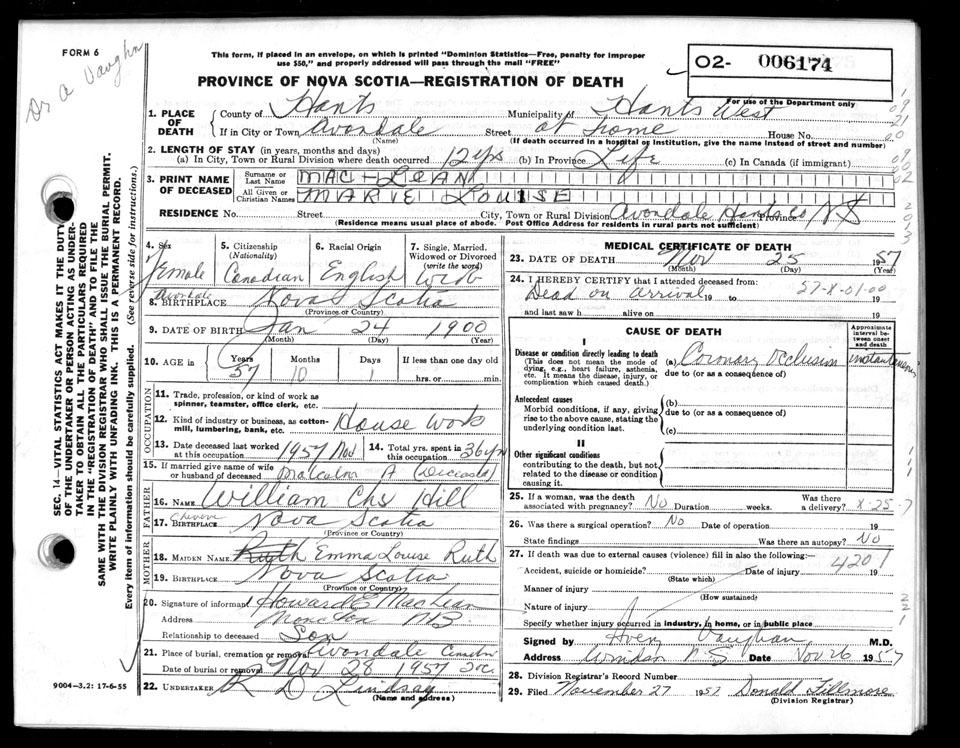 FORM 6
Dr A Vaughn
This form, if placed in an envelope, on which is printed "Dominion Statistics—Free, penalty for improper
use $50," and properly addressed will pass through the mail "FREE"
PROVINCE OF NOVA SCOTIA—REGISTRATION OF DEATH
02- 006174
For use of the Department only
SEC. 14—VITAL STATISTICS ACT MAKES IT THE DUTY
OF THE UNDERTAKER OR PERSON ACTING AS UNDER-
TAKER TO OBTAIN ALL THE PARTICULARS REQUIRED
IN THE "REGISTRATION OF DEATH" AND TO FILE THE
SAME WITH THE DIVISION REGISTRAR WHO SHALL ISSUE THE BURIAL PERMIT.
WRITE PLAINLY WITH UNFADING INK. THIS IS A PERMANENT RECORD.
Every item of information should be carefully supplied. (See reverse side for instructions.)
1. PLACE OF DEATH
County of Hants Municipality of Hants West
If in City or Town Avondale Street at home House No.
(Name) (If death occurred in a hospital or institution, give the name instead of street and number)
2. LENGTH OF STAY (in years, months and days)
(a) In City, Town or Rural Division where death occurred 12 yrs (b) In Province Life (c) In Canada (if immigrant)
3. PRINT NAME OF DECEASED
Surname or Last Name MAC-LEAN
All Given or Christian Names MARIE LOUISE
RESIDENCE No. Street City, Town or Rural Division Avondale Hants Co Province N S
(Residence means usual place of abode. Post Office Address for residents in rural parts not sufficient)
4. Sex Female
5. Citizenship (Nationality) Canadian
6. Racial Origin English
7. Single, Married, Widowed or Divorced (write the word) Wid
8. BIRTHPLACE Avondale Nova Scotia
(Province or Country)
9. DATE OF BIRTH Jan 24 1900
(Month) (Day) (Year)
10. AGE in Years 57 Months 10 Days 1 If less than one day old hrs. or min.
OCCUPATION
11. Trade, profession, or kind of work as spinner, teamster, office clerk, etc.
12. Kind of industry or business, as cotton-mill, lumbering, bank, etc. House Work
13. Date deceased last worked at this occupation 1957 Nov
14. Total yrs. spent in this occupation 36 yrs
15. If married give name of wife or husband of deceased Malcolm A (Deceased)
FATHER
16. NAME William Chs Hill
17. BIRTHPLACE Nova Scotia
(Province or Country)
MOTHER
18. MAIDEN NAME Ruth Emma Louise Ruth
19. BIRTHPLACE Nova Scotia
(Province or Country)
20. Signature of informant Howard E MacLean
Address Moncton NB
Relationship to deceased Son
21. Place of burial, cremation or removal Avondale
Date of burial or removal Nov 28 1957
22. UNDERTAKER K D Lindsay
(Name and address)
9004-3.2: 17-6-55
MEDICAL CERTIFICATE OF DEATH
23. DATE OF DEATH Nov 25 1957
(Month) (Day) (Year)
24. I HEREBY CERTIFY that I attended deceased from:
Dead on arrival 19 to 57-X-01-00 19
and last saw h alive on 19
CAUSE OF DEATH
Approximate interval between onset and death
I
Disease or condition directly leading to death
(This does not mean the mode of dying, e.g., heart failure, asthenia, etc. It means the disease, injury, or complication which caused death.)
(a) Coronary Occlusion instantaneous
due to (or as a consequence of)
Antecedent causes
Morbid conditions, if any, giving rise to the above cause, stating the underlying condition last.
(b)
due to (or as a consequence of)
(c)
II
Other significant conditions
contributing to the death, but not related to the disease or condition causing it.
25. If a woman, was the death associated with pregnancy? No Duration weeks. Was there a delivery? X-25-7
26. Was there a surgical operation? No Date of operation 19
State findings Was there an autopsy? No
27. If death was due to external causes (violence) fill in also the following:—
4201
Accident, suicide or homicide? Date of injury 19
(State which)
Manner of injury
(How sustained)
Nature of injury
Specify whether injury occurred in industry, in home, or in public place
Signed by Avery Vaughan M.D.
Address Windsor N S Date Nov 26 1957
28. Division Registrar's Record Number
29. Filed November 27 1957 Donald Fillmore
(Division Registrar)